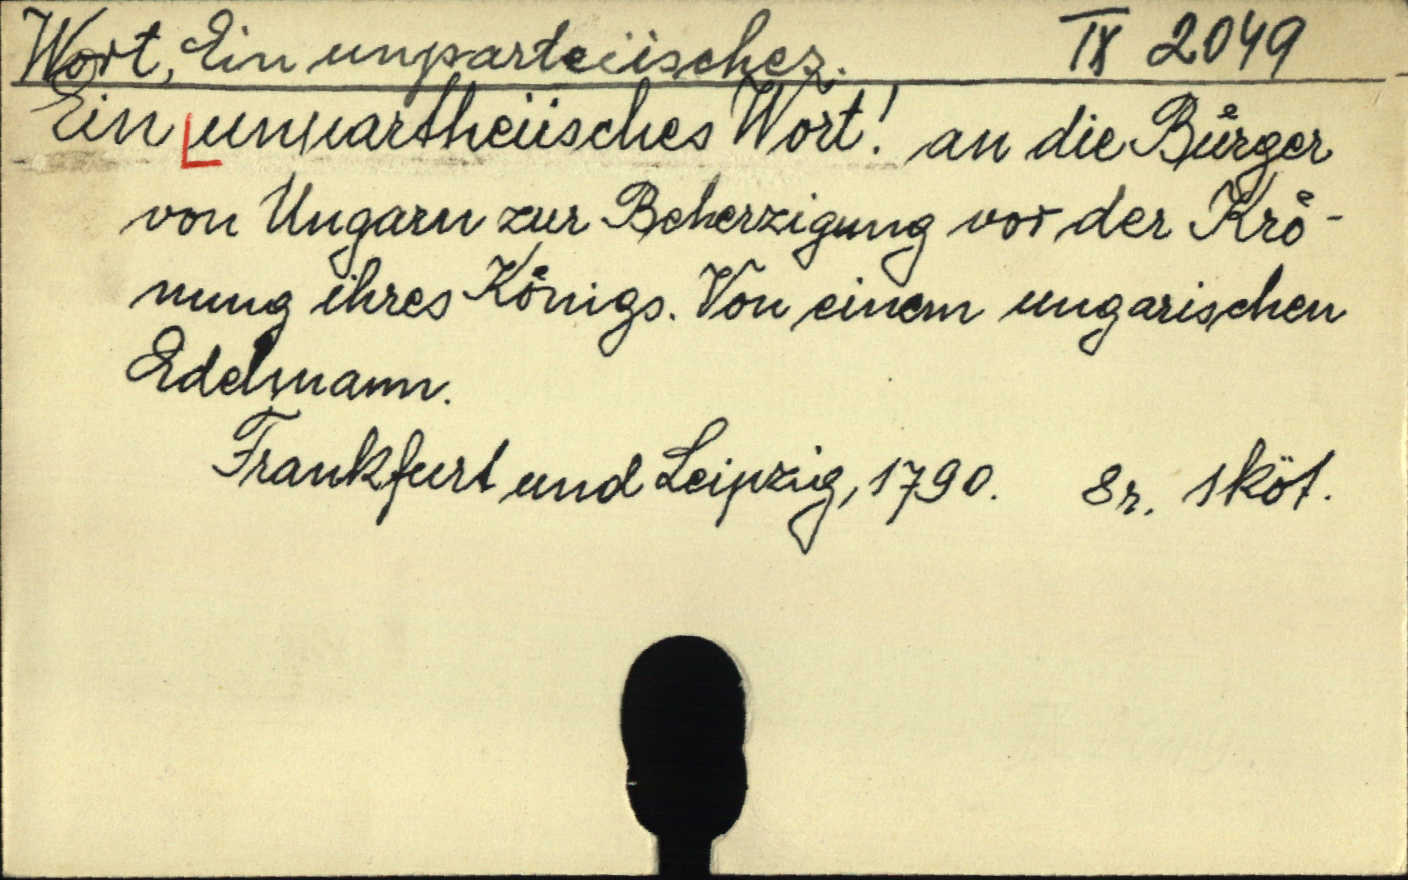 Wort, Ein unparteiisches. IX 2049
Ein unpartheiisches Wort! an die Bůrger
von Ungarn zur Beherzigung vor der Krő-
nung ihres Kőnigs. Von einem ungarischen
Edelmann.
Frankfurt und Leipzig, 1790. 8r. 1 köt.